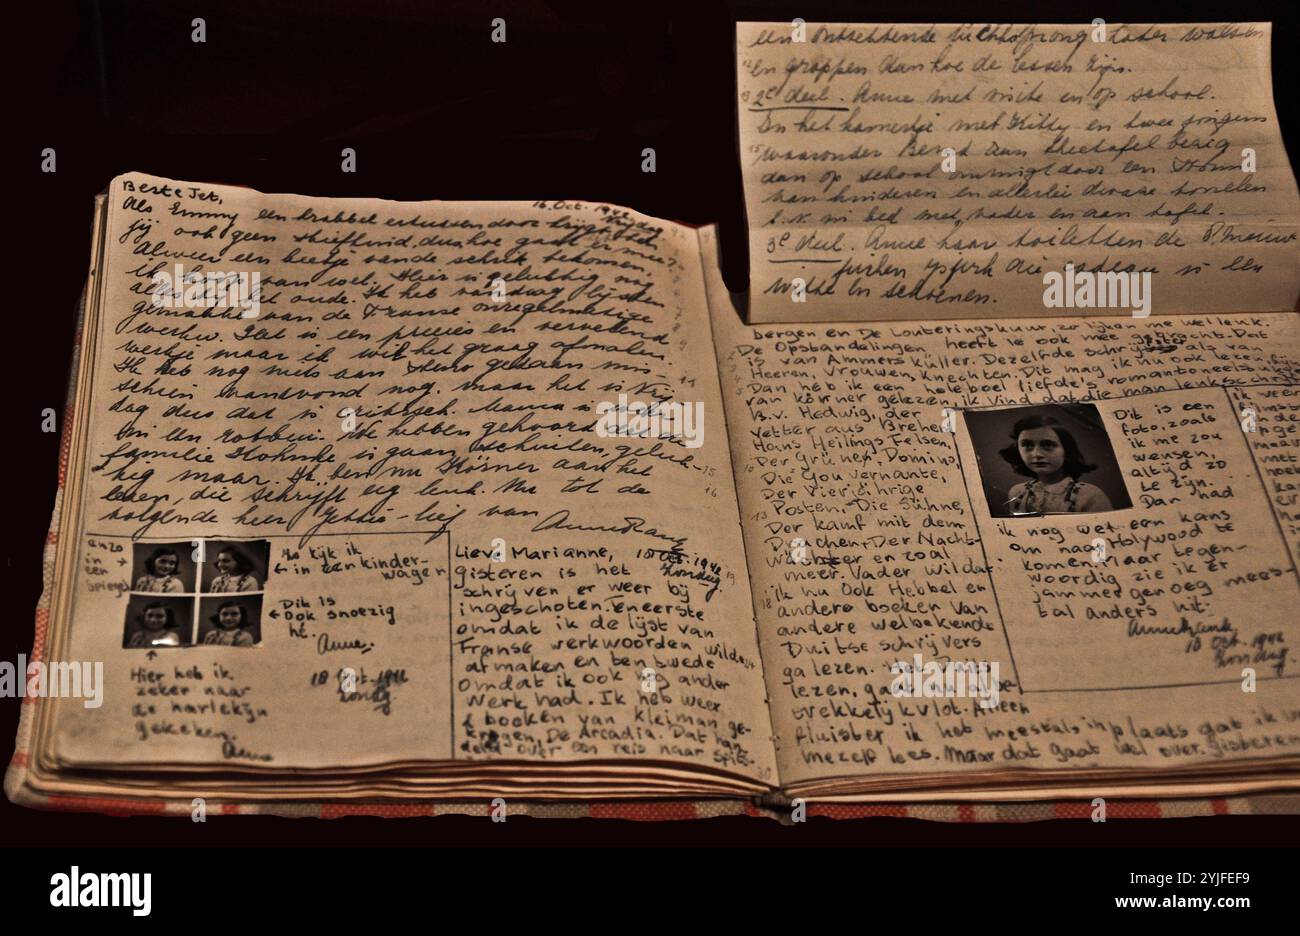 een ontzettende luchtsprong. Later walsen
en grappen aan hoe de lessen zijn.
2e deel. Anne met visite en op school.
In het kamertje met Kitty en twee jongens
waaronder aan theetafel bezig
dan op school omringd door een
van kinderen en allerlei dwaze
in bed met vader en aan tafel.
3e deel. Anne haar toiletten de
jurken die cadeau is een
witte en schoenen.
Beste Jet,
16 Oct. 1942
Vrijdag
Als Emmy een krabbel
jij ook geen stiefkind, dus hoe gaat er mee?
Alweer een beetje van de schrik bekomen,
ik hoop van wel. Hier is gelukkig nog
alles bij het oude. Ik heb vandaag lijsten
gemaakt van de Franse onregelmatige
werkw. Het is een precies en vervelend
werkje maar ik wil het graag afmaken.
Ik heb nog niets aan Steno gedaan mis-
schien vanavond nog, maar het is Vrij-
dag dus dat is critisch. Mama is weer
in een rotbui. We hebben gehoord dat de
familie is gaan schuilen, geluk-
kig maar. Ik ben nu Körner aan het
lezen, die schrijft erg leuk. Nu tot de
volgende keer Jettie-lief van
Anne Frank
anzo
in
een
spiegel
Zo kijk ik
in een kinder-
wagen
Dit is
ook snoezig
hè.
Anne.
Hier heb ik
zeker naar
de harlekijn
gekeken.
Anne
18 Oct. 1942
Zondag
Lieve Marianne,
18 Oct. 1942
Zondag
gisteren is het
schrijven er weer bij
ingeschoten. Teneerste
omdat ik de lijst van
Franse werkwoorden wilde
afmaken en ten twede
omdat ik ook nog ander
werk had. Ik heb weer
2 boeken van kleiman ge-
kregen, De Arcadia. Dat han-
delt over een reis naar Spits-
bergen en De Louteringskuur, zo lijken me wel leuk.
De Opstandelingen heeft ie ook mee gebracht. Dat
is van Ammers küller. Dezelfde schrijfster als van
Heeren, Vrouwen, knechten. Dit mag ik nu ook lezen, fijn
Dan heb ik een heleboel liefde's romantoneelstukjes
van körner gelezen, ik vind dat die man leuk schrijft
B.v. Hedwig, der
Vetter aus Bremen,
Hans Heilings Felsen,
Der Grüne Domino,
Die Gouvernante,
Der Vierjährige
Posten, Die Sühne,
Der Kampf mit dem
Drachen, Der Nacht-
wächter en zoal
meer. Vader wil dat
ik nu ook Hebbel en
andere boeken van
andere welbekende
Duitse schrijvers
ga lezen. Het Duits
lezen, gaat nu al be-
trekkelijk vlot. Alleen
fluister ik het meestal, in plaats dat ik voor
mezelf lees. Maar dat gaat wel over. gisteren
Dit is een
foto, zoals
ik me zou
wensen,
altijd zo
te zijn.
Dan had
ik nog wel een kans
om naar Holywood te
komen. Maar tegen-
woordig zie ik er
jammer genoeg mees-
tal anders uit.
Anne Frank
18 Oct. 1942
Zondag
alamy
Image ID: 2YJFEF9
www.alamy.com